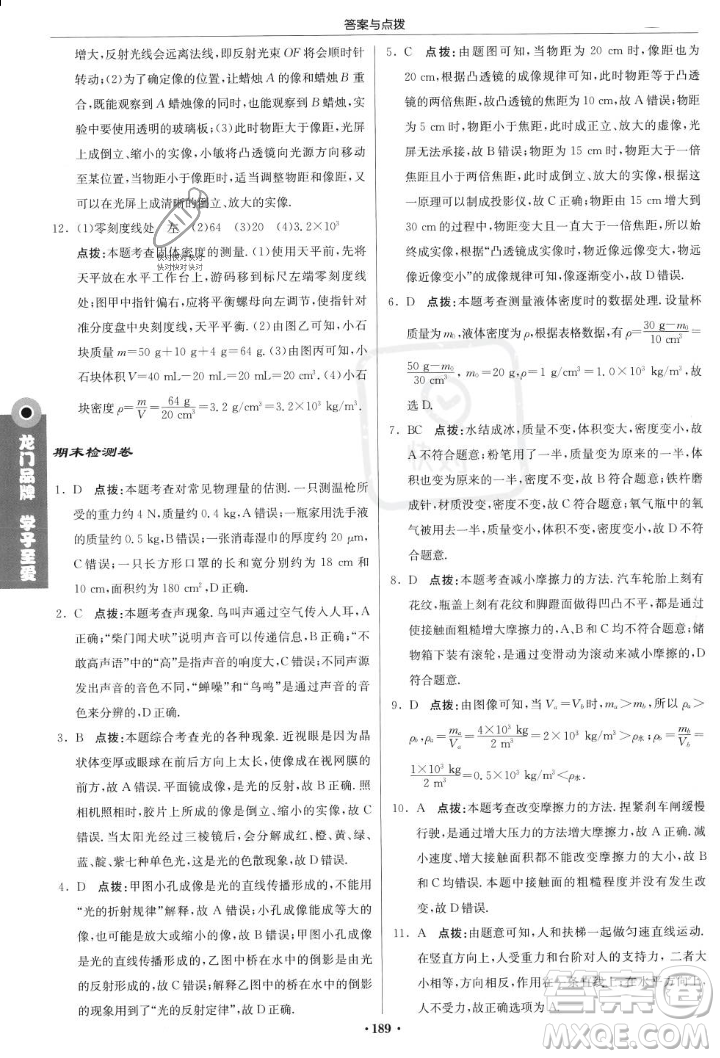 答案与点拨
增大，反射光线会远离法线，即反射光束OF有顺时针
转动；(2)为了确定像的位置，让蜡烛A的像与蜡烛B重
合，既能看到A蜡烛像的同时，也能观察到B蜡烛，实
验中要使用透明的玻璃板；(3)此时物距大于像距，光屏
上成倒立、缩小的实像，若将凸透镜向光源方向移动
至某位置，当物距小于像距时，根据光路可逆，此时物
体可以在光屏上成清晰的倒立、放大的实像.
12. (1)零刻度线处 左 (2)64 (3)20 (4)3.2×10³
点拨：本题考查固体密度的测量. (1)使用天平前，将
天平放在水平工作台上，游码移到标尺左端零刻度线
处；图甲中指针偏右，应将平衡螺母向左调节，使指针对
准分度盘中央刻度线，天平平衡；(2)由图乙可知，小石
块质量m=50 g+10 g+4 g=64 g；(3)由图丙可知，小
石块体积V=40 mL-20 mL=20 mL=20 cm³；(4)小石
块密度ρ=m/V=64 g/20 cm³=3.2 g/cm³=3.2×10³ kg/m³.
期末检测卷
1. D 点拨：本题考查对常见物理量的估测. 一只测温枪所
受的重力约4 N，质量约0.4 kg，A错误；一瓶家用洗手液
的质量约0.5 kg，B错误；一张消毒湿巾的厚度约20 μm，
C错误；一只长方形口罩的长和宽分别约为18 cm和
10 cm，面积约为180 cm²，D正确.
2. C 点拨：本题考查声现象. 鸟叫声通过空气传入人耳，A
正确；“柴门闻犬吠”说明声音可以传递信息，B正确；“不
敢高声语”中的“高”是指声音的响度大，C错误；不同声源
发出声音的音色不同，“蝉噪”和“鸟鸣”是通过声音的音色
来分辨的，D正确.
3. B 点拨：本题综合考查光的各种现象. 近视眼是因为晶
状体变厚或眼球在前后方向上太长，会使像成在视网膜的
前方，故A错误. 平面镜成像，是光的反射，故B正确. 用
照相机照相时，胶片上所成的像是倒立、缩小的实像，故C
错误. 当太阳光经过三棱镜后，会分解成红、橙、黄、绿、
蓝、靛、紫七种单色光，这是光的色散现象，故D错误.
4. D 点拨：甲图小孔成像是光的直线传播形成的，不能用
“光的折射规律”解释，故A错误；甲图小孔成像可能是放
大的也可能是缩小的，故B错误；乙图中桥在水中的倒影
是光的反射形成的，故C错误；甲图小孔成像是光的直线
传播形成的，乙图中桥在水中的倒影是光的反射形成的，
可以用“光的反射定律”解释，故D正确.
5. C 点拨：由题图可知，当物距为20 cm时，像距为
20 cm，根据凸透镜的成像规律可知，此时物距等于凸透
镜的两倍焦距，故凸透镜的焦距为10 cm，故A错误；物距
为5 cm时，物距小于焦距，此时成正立、放大的虚像，光
屏无法承接，故B错误；物距为15 cm时，物距大于一倍
焦距且小于两倍焦距，此时成倒立、放大的实像，可利用这
一原理制成投影仪，故C正确；物距由15 cm增大到
30 cm的过程中，物距始终大于焦距，所以物体经凸透镜
始终成实像，根据“凸透镜成实像时，物近像远像变大，物
远像近像变小”的成像规律可知，像逐渐变小，故D错误.
6. D 点拨：本题考查测量液体密度时的数据处理. 设量杯
质量为m₀，液体密度为ρ，根据表格数据，有ρ=(30 g-m₀)/(10 cm³)=
(50 g-m₀)/(30 cm³)，故m₀=20 g，ρ=1 g/cm³，代入可得m=60 g，故
选D.
7. BC 点拨：水结成冰，质量不变，密度变小，体积变大，故
不符合题意；粉笔用了一半，密度不变，故符合题意；铁杵磨
成针，材质没变，密度不变，故符合题意；氧气瓶中的氧气
使用过一半，质量减半，体积不变，密度减小，故不符
合题意.
8. D 点拨：本题考查减小摩擦力的方法. 汽车轮胎上刻有
花纹，瓶盖上刻有纹和脚蹬面做得凹凸不平，都是通过
使接触面粗糙增大摩擦的，故A、B、C不符合题意；储
物箱下装有滚轮，是通过变滑动为滚动来减小摩擦的，故
D符合题意.
9. D 点拨：由图像可知，当Vₐ=V_b时，mₐ>m_b，所以ρₐ>
ρ_b，ρₐ=mₐ/Vₐ=(4×10³ kg)/(2 m³)=2×10³ kg/m³>ρ水，ρ_b=m_b/V_b=
(1×10³ kg)/(2 m³)=0.5×10³ kg/m³<ρ水.
10. A 点拨：本题考查改变摩擦力的方法. 捏紧刹车闸缓慢
行驶，是通过增大压力的方法增大摩擦的，故A正确. 减
小速度、增大动力都不能改变摩擦力的大小，故B、D错
误. 本题中接触面的粗糙程度并没有增大，故C错误.
11. A 点拨：由题意可知，人和扶梯一起做匀速直线运动.
在竖直方向上，人受重力和台阶对人的支持力，二者大
小相等、方向相反、作用在一条直线上；在水平方向上不
受力的作用，故正确选项为A.
龙门品牌 学子至爱
快对快对快对
快对快对快对
快对
作业精灵
MXQE.COM
· 189 ·